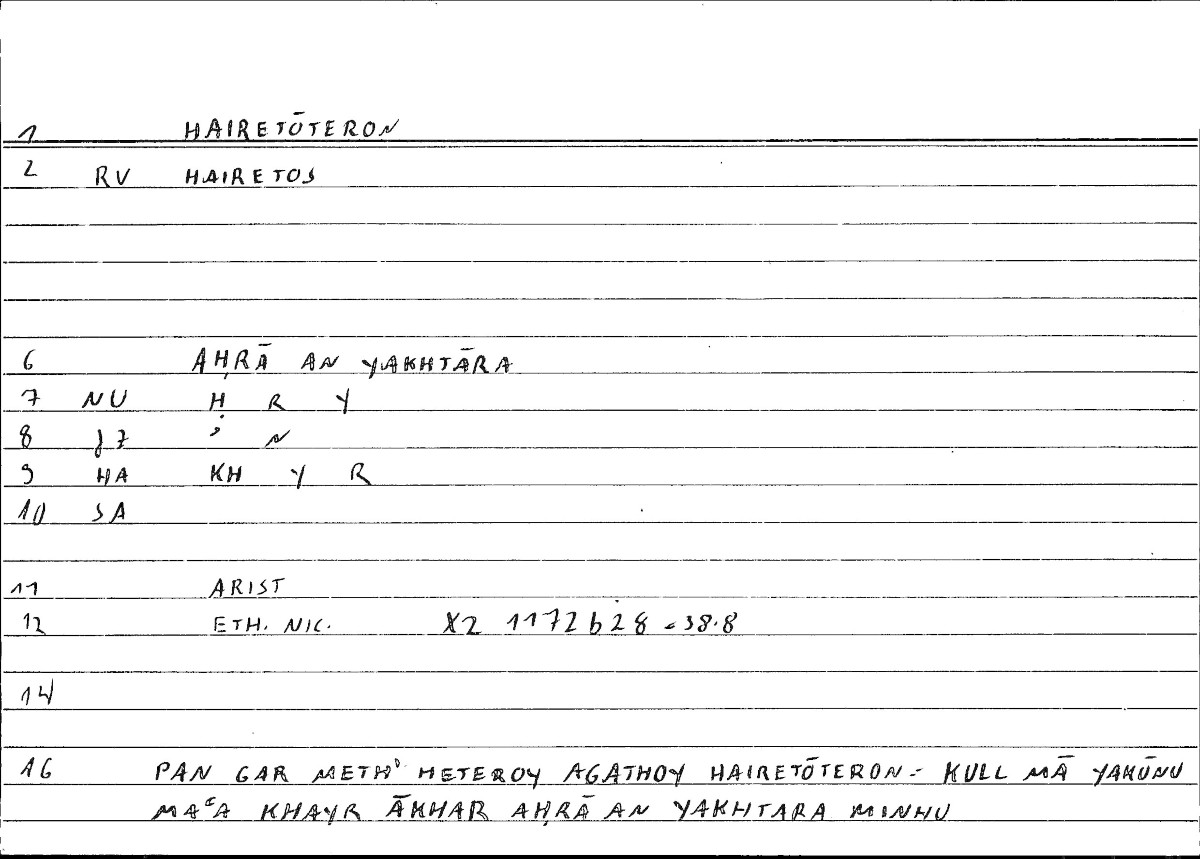 1 HAIRETŌTERON
2 RV HAIRETOS
6 AḤRĀ AN YAKHTĀRA
7 NU Ḥ R Y
8 J7 ʾ N
9 HA KH Y R
10 SA
11 ARIST
12 ETH. NIC. X2 1172b28 = 38.8
14
16 PAN GAR METH' HETEROY AGATHOY HAIRETŌTERON = KULL MĀ YAKŪNU
MAʿA KHAYR ĀKHAR AḤRĀ AN YAKHTARA MINHU